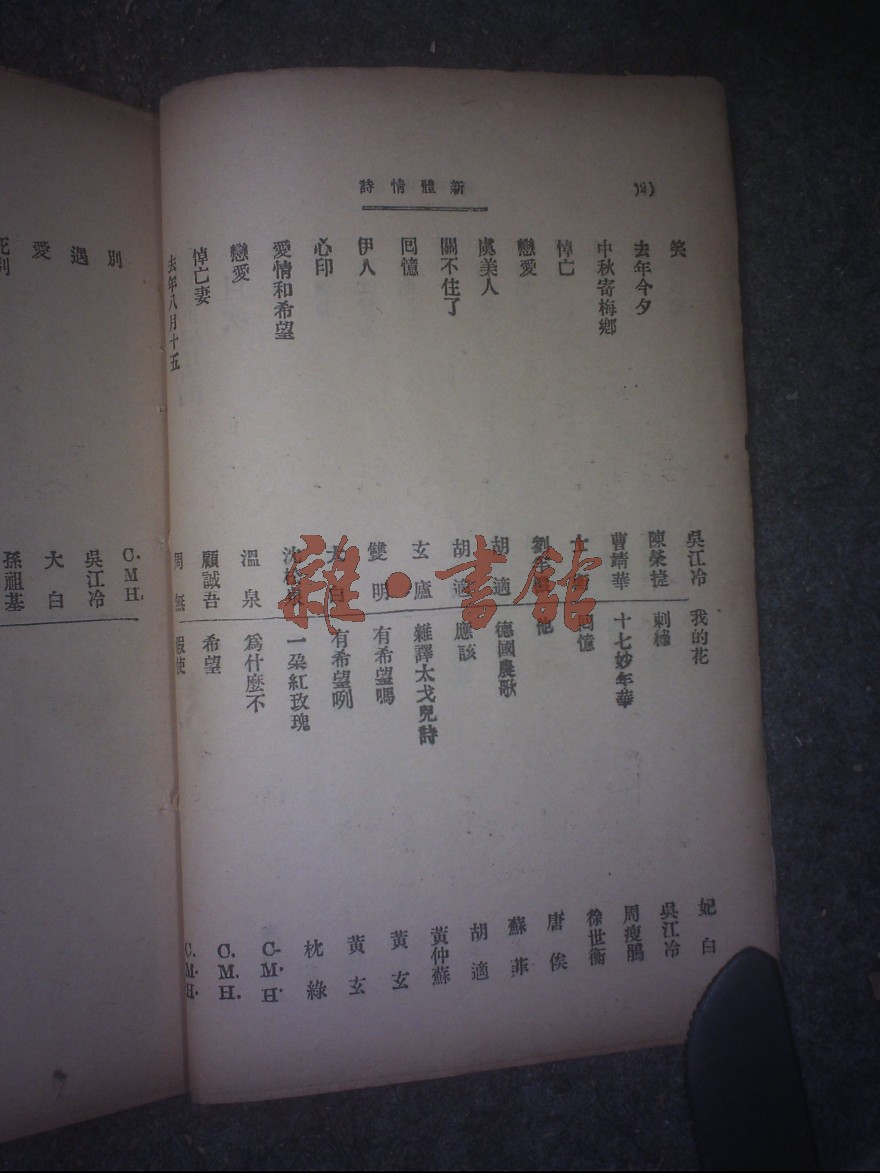 新體情詩
笑
吳江冷
去年今夕
陳榮捷
中秋寄梅鄉
曹靖華
悼亡
戀愛
虞美人
胡適
關不住了
胡適
回憶
玄廬
伊人
雙明
心印
大白
愛情和希望
戀愛
溫泉
悼亡妻
顧誠吾
去年八月十五
周無
我的花
妃白
刺
吳江冷
十七妙年華
周瘦鵑
回憶
徐世衡
他
唐俟
德國農歌
蘇菲
應該
胡適
雜譯太戈兒詩
黃仲蘇
有希望嗎
黃玄
有希望咧
黃玄
一朶紅玫瑰
枕綠
爲什麼不
C. M. H.
希望
C. M. H.
假使
C. M. H.
別
C. M. H.
遇
吳江冷
愛
大白
死別
孫祖基
雜·書館